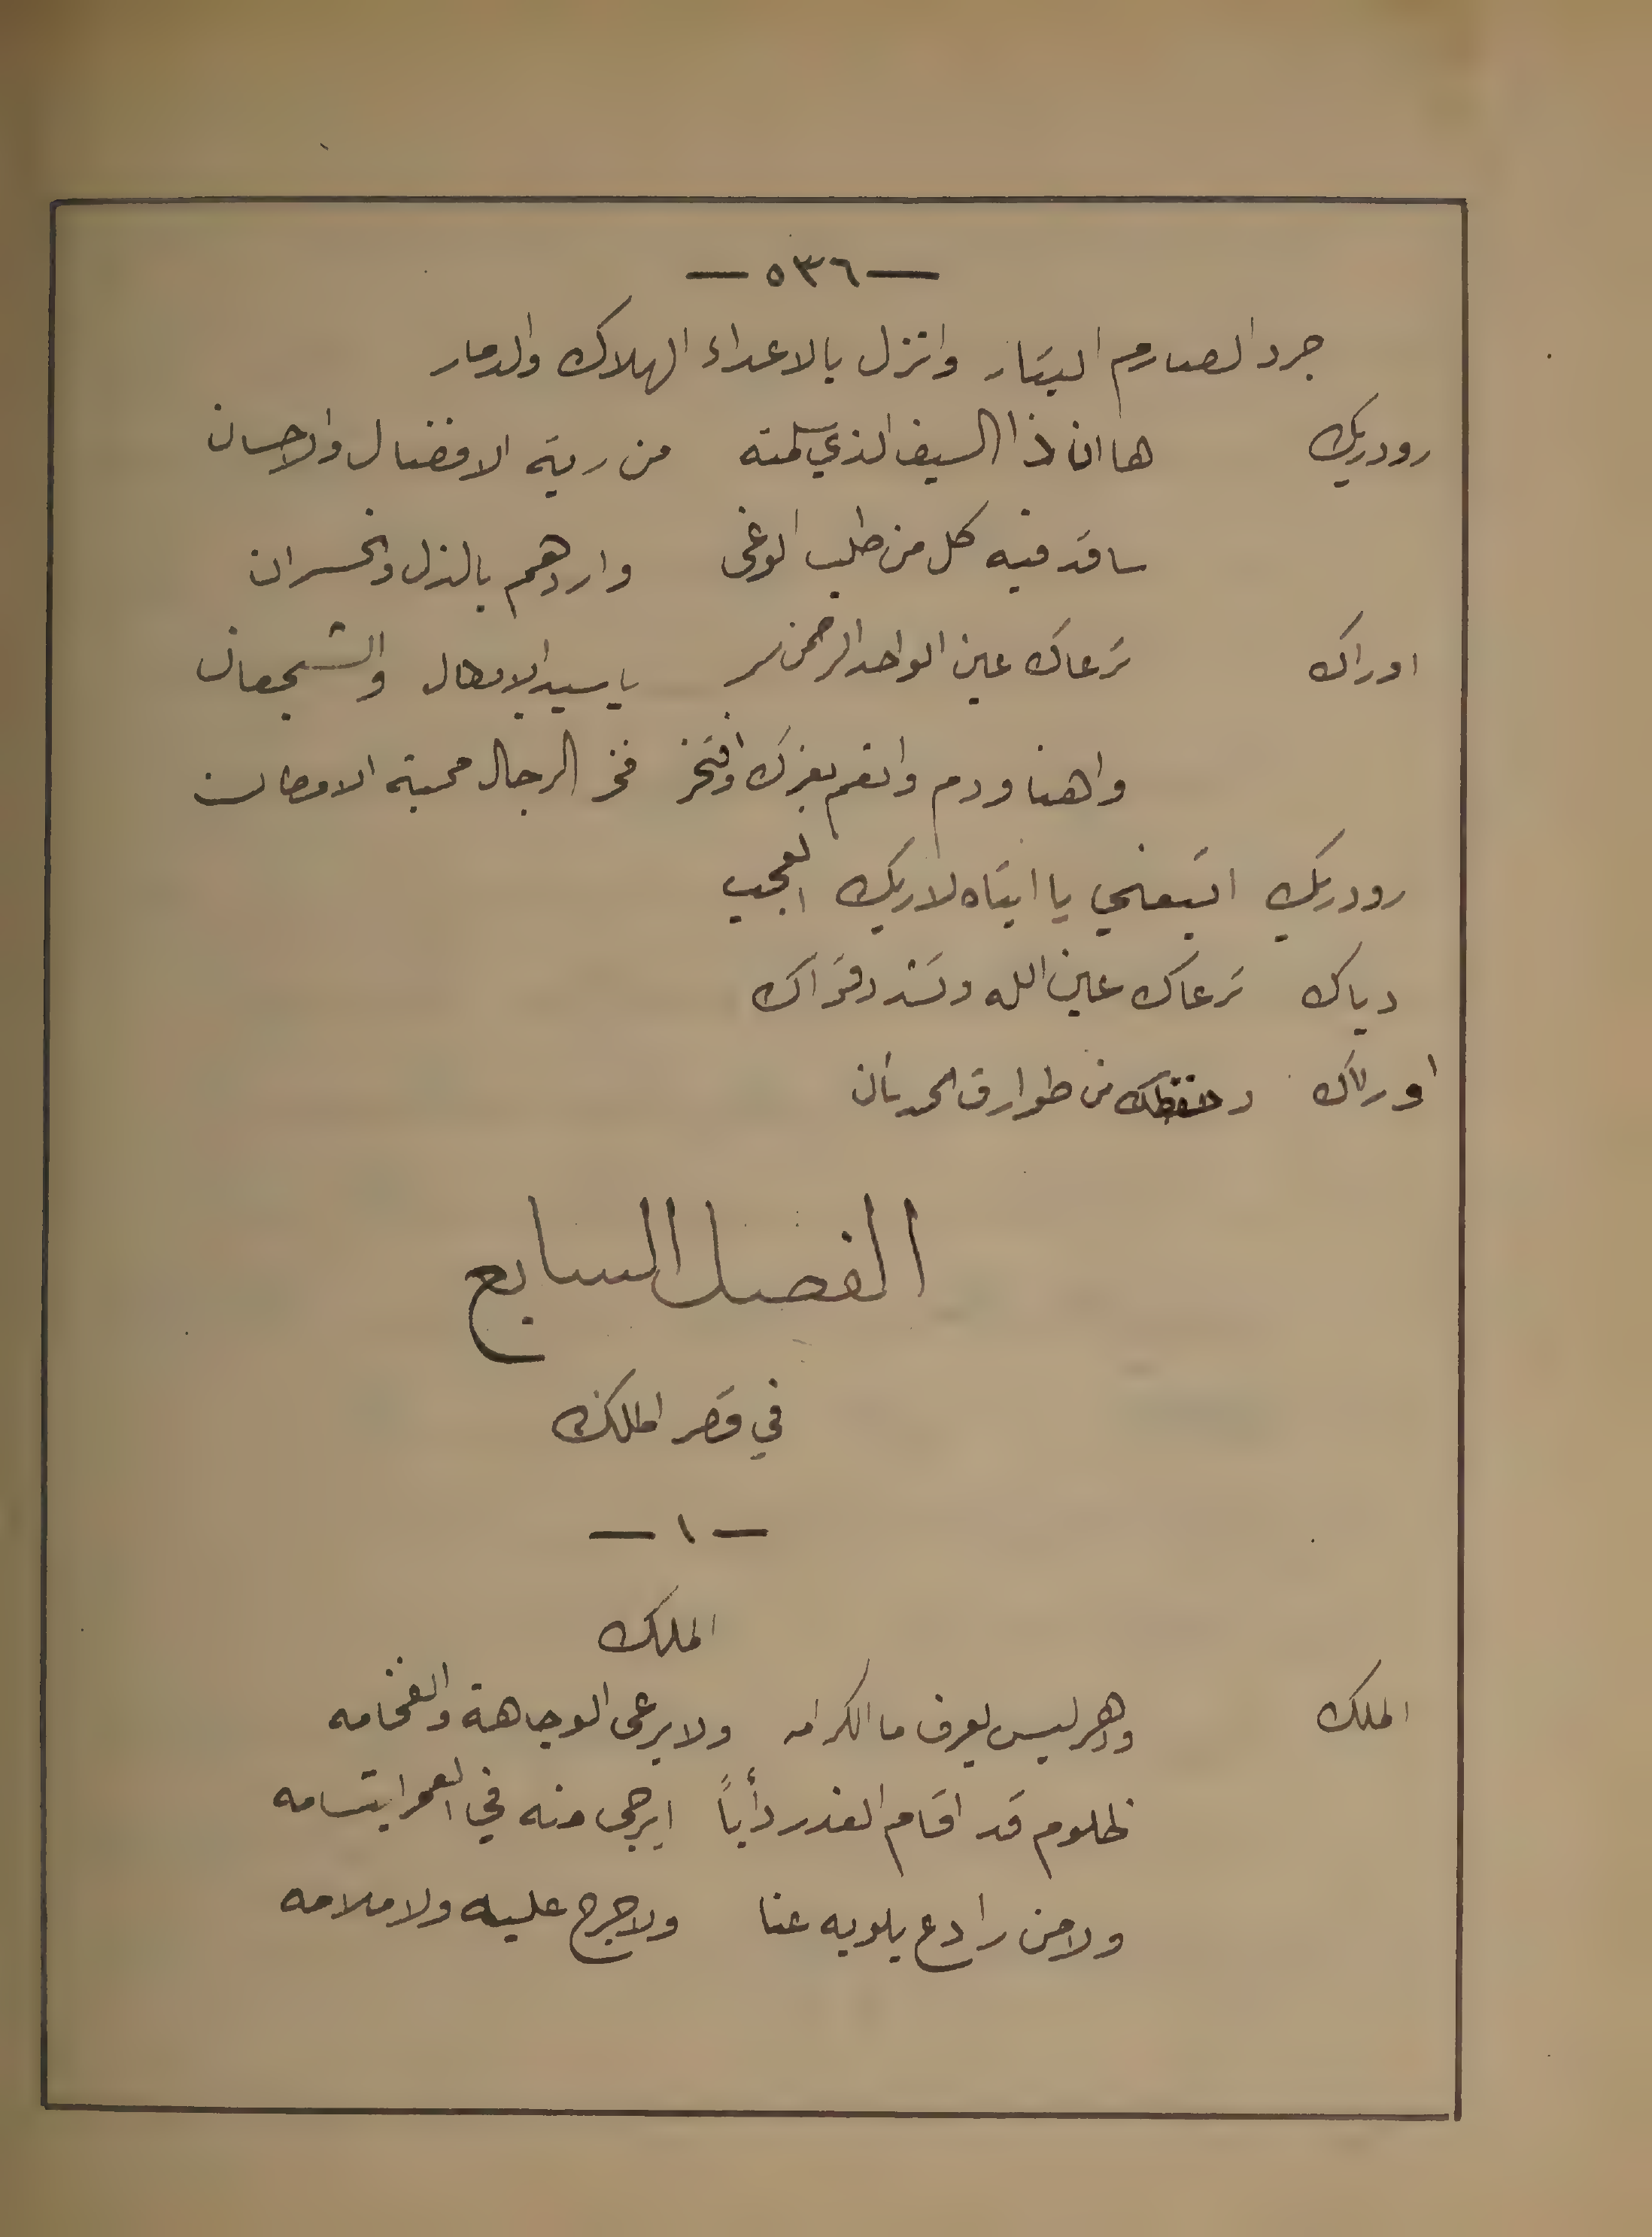 — ٥٣٦ —
جرد الصارم البتار وانزل بالاعداء الهلاك والدمار
رودريك ها ان ذا السيف الذي سلمته من ربة الافضال والاحسان
ساقد فيه كل من طلب الوغى واردهم بالذل والخسران
اوراك ترعاك عين الواحد الرحمن يا سيد الابطال والشجعان
واهنا ودم وانعم بعزك وافتخر فخر الرجال محبة الاوطان
رودريك اتبعني يا ابتاه لاريك العجب
دياك ترعاك عين الله وتشدد قواك
اوراك وحفظك من طوارق الحدثان
الفصل السابع
في قصر الملك
— ١ —
الملك
الملك ودهر ليس يعرف ما الكرامه ولا يرعى الوجاهة والفخامه
ظلوم قد اقام الغدر دأباً ايرجى منه في العمر ابتسامه
ولا من رادع يلويه عنا ولا حرج عليه ولا ملامه